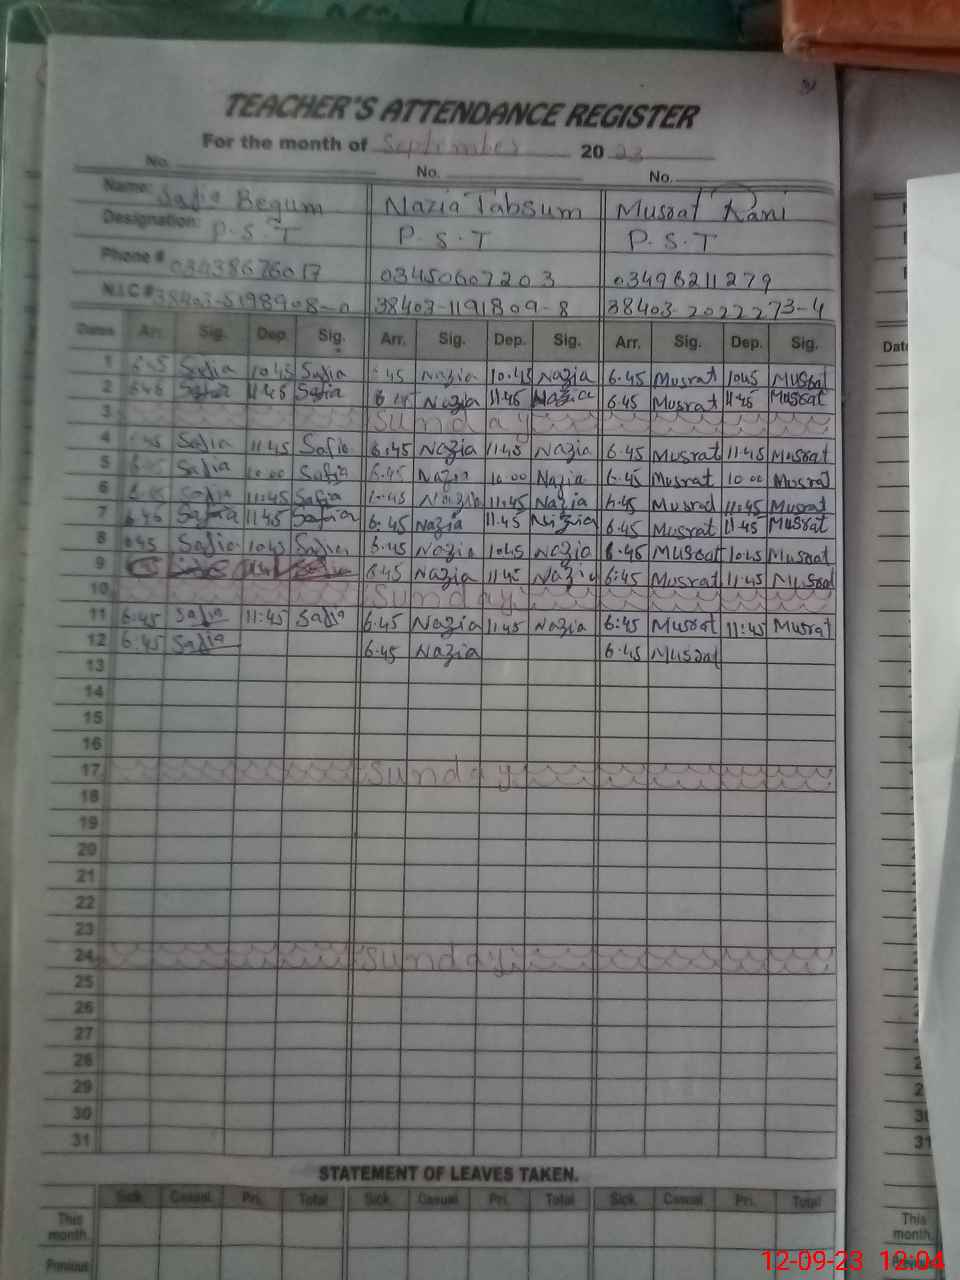 TEACHER'S ATTENDANCE REGISTER
For the month of September 20 23
No. No. No.
Name: Safia Begum Nazia Tabsum Musrat Rani
Designation: P.S.T P.S.T P.S.T
Phone # 03438676017 03450607203 03496211279
N.I.C # 38403-1191809-8 38403-2022273-4
Dates Arr. Sig. Dep. Sig. Arr. Sig. Dep. Sig. Arr. Sig. Dep. Sig.
1 Safia 10 45 Safia 45 Nazia 10:45 Nazia 6.45 Musrat 1045 Musrat
2 Safia 11 45 Safia 6 45 Nazia 11:45 Nazia 6.45 Musrat 11 45 Musrat
3 Sunday
4 Safia 11:45 Safia 6.45 Nazia 11:45 Nazia 6.45 Musrat 11:45 Musrat
5 Safia 10:00 Safia 6.45 Nazia 10:00 Nazia 6.45 Musrat 10 00 Musrat
6 Safia 11:45 Safia 6.45 Nazia 11:45 Nazia 6.45 Musrat 11:45 Musrat
7 Safia 11:45 Safia 6:45 Nazia 11.45 Nazia 6.45 Musrat 11:45 Musrat
8 Safia 1045 Safia 6.45 Nazia 1045 Nazia 6.45 Musrat 1045 Musrat
9 6.45 Nazia 11:45 Nazia 6:45 Musrat 11:45 Musrat
10 Sunday
11 6:45 Safia 11:45 Safia 6.45 Nazia 11:45 Nazia 6:45 Musrat 11:45 Musrat
12 6:45 Safia 6.45 Nazia 6.45 Musrat
13
14
15
16
17 Sunday
18
19
20
21
22
23
24 Sunday
25
26
27
28
29
30
31
STATEMENT OF LEAVES TAKEN.
Sick. Casual. Pri. Total Sick. Casual Pri. Total Sick. Casual. Pri. Total
This month.
Previous
Date
31
This month.
12-09-23 12:04